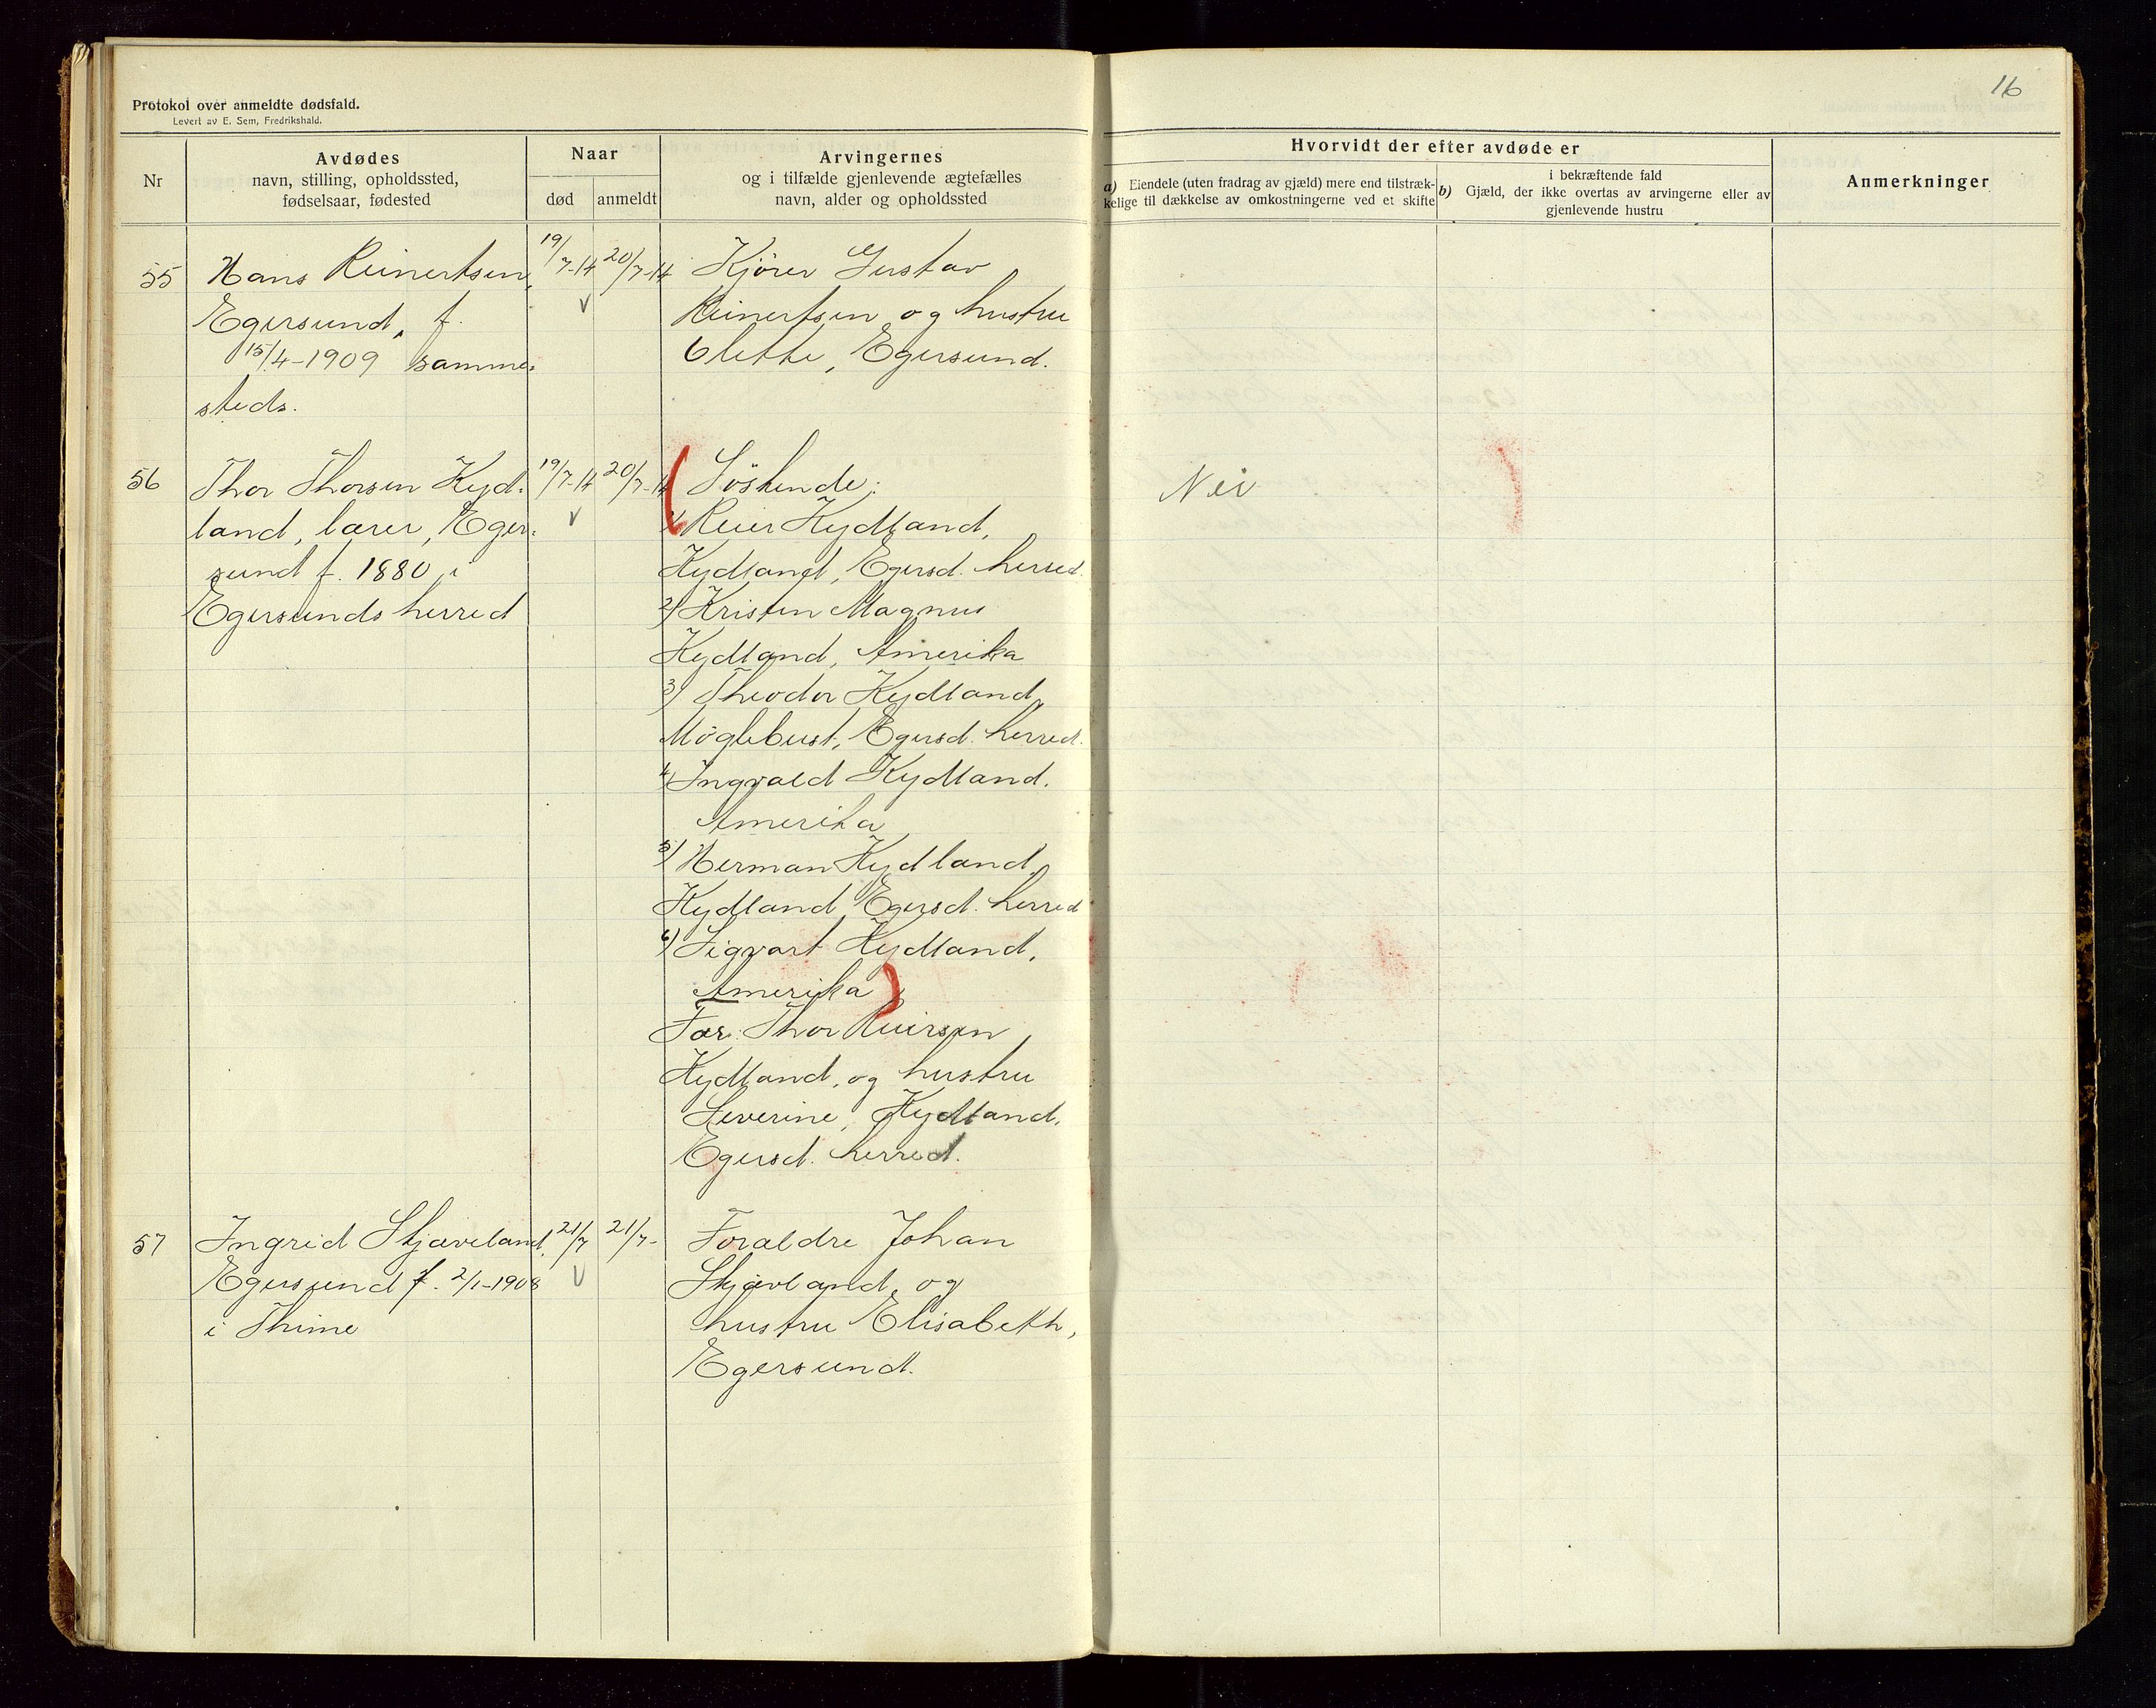 16
Protokol over anmeldte dødsfald.
Levert av E. Sem, Fredrikshald.
Nr
Avdødes
navn, stilling, opholdssted,
fødselsaar, fødested
Naar
død
anmeldt
Arvingernes
og i tilfælde gjenlevende ægtefælles
navn, alder og opholdssted
Hvorvidt der efter avdøde er
a) Eiendele (uten fradrag av gjæld) mere end tilstræk-
kelige til dækkelse av omkostningerne ved et skifte
i bekræftende fald
b) Gjæld, der ikke overtas av arvingerne eller av
gjenlevende hustru
Anmerkninger
55
Hans Reinertsen,
Egersund, f.
15/4-1909 samme-
steds.
19/7-14
20/7-14
Kjører Gustav
Reinertsen og hustru
Olette, Egersund.
56
Thor Thorsen Kyd-
land, lærer, Eger-
sund f. 1880 i
Egersunds herred
19/7-14
20/7-14
Söskende:
1) Reier Kydland,
Kydland, Egersd. herred.
2) Kristen Magnus
Kydland, Amerika
3) Theodor Kydland,
Möglebust, Egersd. herred.
4) Ingvald Kydland.
Amerika
5) Herman Kydland,
Kydland, Egersd. herred
6) Sigvart Kydland,
Amerika)
Far: Thor Reiersen
Kydland, og hustru
Severine, Kydland,
Egersd. herred.
Nei
57
Ingrid Skjæveland,
Egersund f. 2/1-1908
i Thime
21/7
21/7-
Forældre Johan
Skjævland, og
hustru Elisabeth,
Egersund.